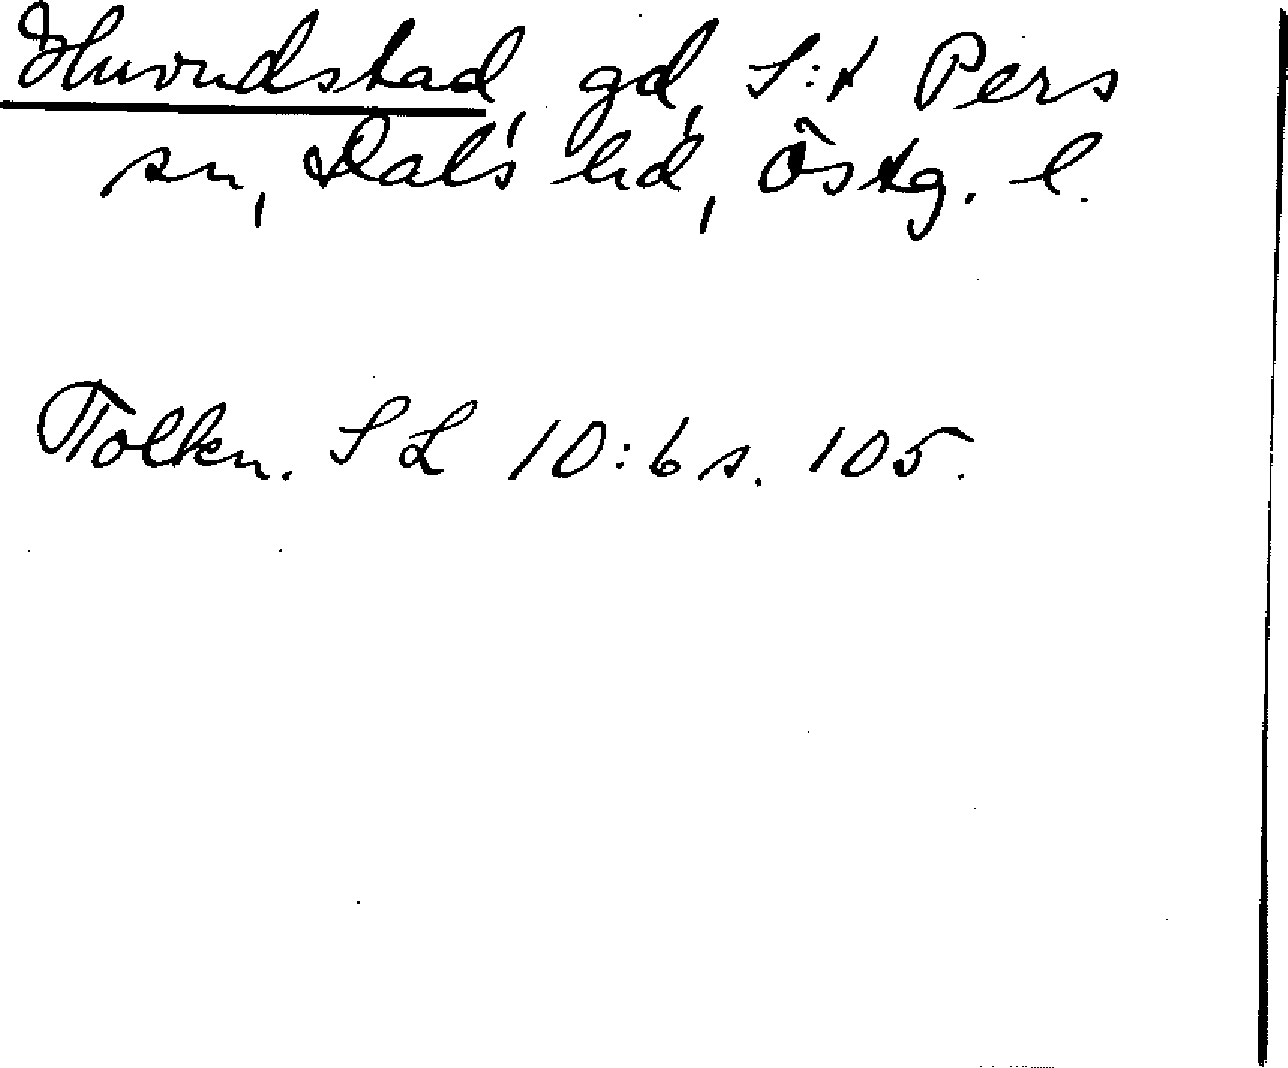 Huvudstad, gd, S:t Pers
sn, Dals hd, Östg. l.
Tolkn. SL 10:6 s. 105.